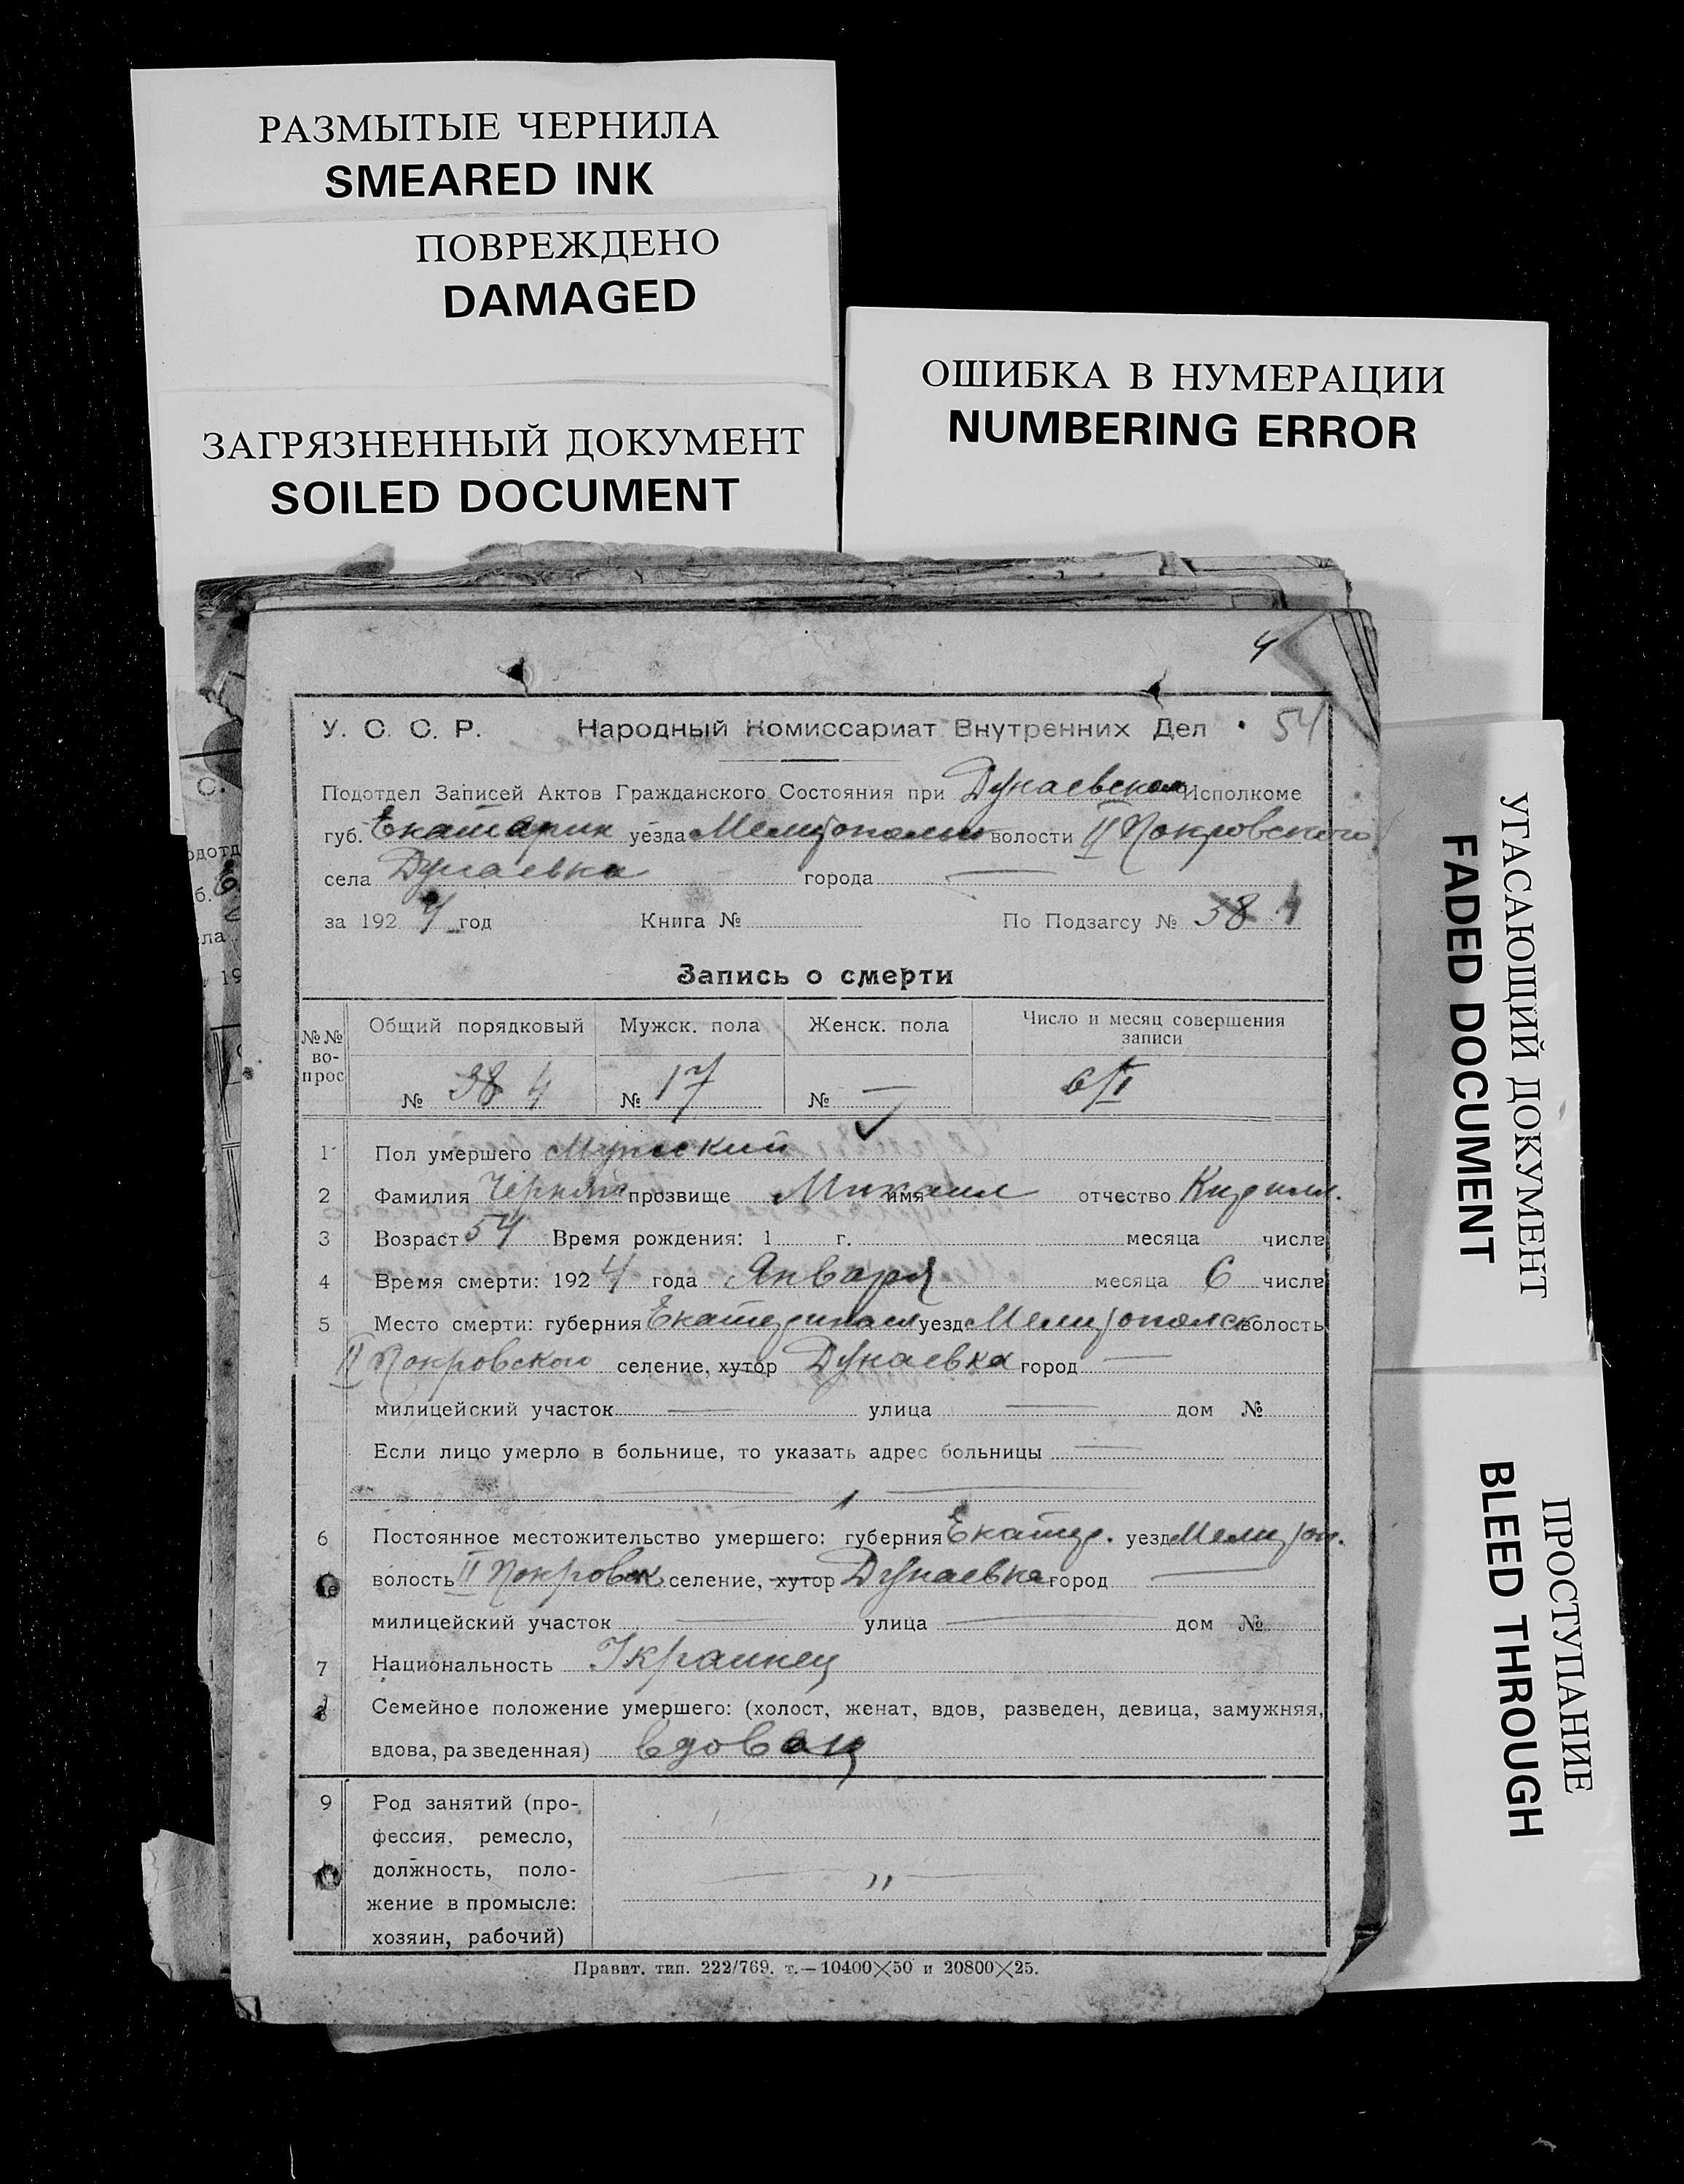 РАЗМЫТЫЕ ЧЕРНИЛА
SMEARED INK
ПОВРЕЖДЕНО
DAMAGED
ЗАГРЯЗНЕННЫЙ ДОКУМЕНТ
SOILED DOCUMENT
ОШИБКА В НУМЕРАЦИИ
NUMBERING ERROR
УГАСАЮЩИЙ ДОКУМЕНТ
FADED DOCUMENT
ПРОСТУПАНИЕ
BLEED THROUGH
4
У. С. С. Р. Народный Комиссариат Внутренних Дел 54
Подотдел Записей Актов Гражданского Состояния при Дунаевском Исполкоме
губ. Екатерин уезда Мелитопольск волости II Покровского
села Дунаевка города —
за 1924 год Книга № По Подзагсу № 38 4
Запись о смерти
№№ во-прос Общий порядковый Мужск. пола Женск. пола Число и месяц совершения записи
№ 38 4 № 17 № — 6/I
1 Пол умершего Мужский
2 Фамилия Черный прозвище Михаил имя отчество Кирилл.
3 Возраст 54 Время рождения: 1 г. месяца числа
4 Время смерти: 1924 года Января месяца 6 числа
5 Место смерти: губерния Екатеринославл уезд Мелитопольск волость
II Покровского селение, хутор Дунаевка город —
милицейский участок — улица — дом №
Если лицо умерло в больнице, то указать адрес больницы —
6 Постоянное местожительство умершего: губерния Екатер. уезд Мелитоп.
волость II Покровск селение, хутор Дунаевка город —
милицейский участок — улица — дом №
7 Национальность Украинец
8 Семейное положение умершего: (холост, женат, вдов, разведен, девица, замужняя,
вдова, разведенная) вдовец
9 Род занятий (про-
фессия, ремесло,
должность, поло- — " —
жение в промысле:
хозяин, рабочий)
Правит. тип. 222/769. т.—10400×50 и 20800×25.